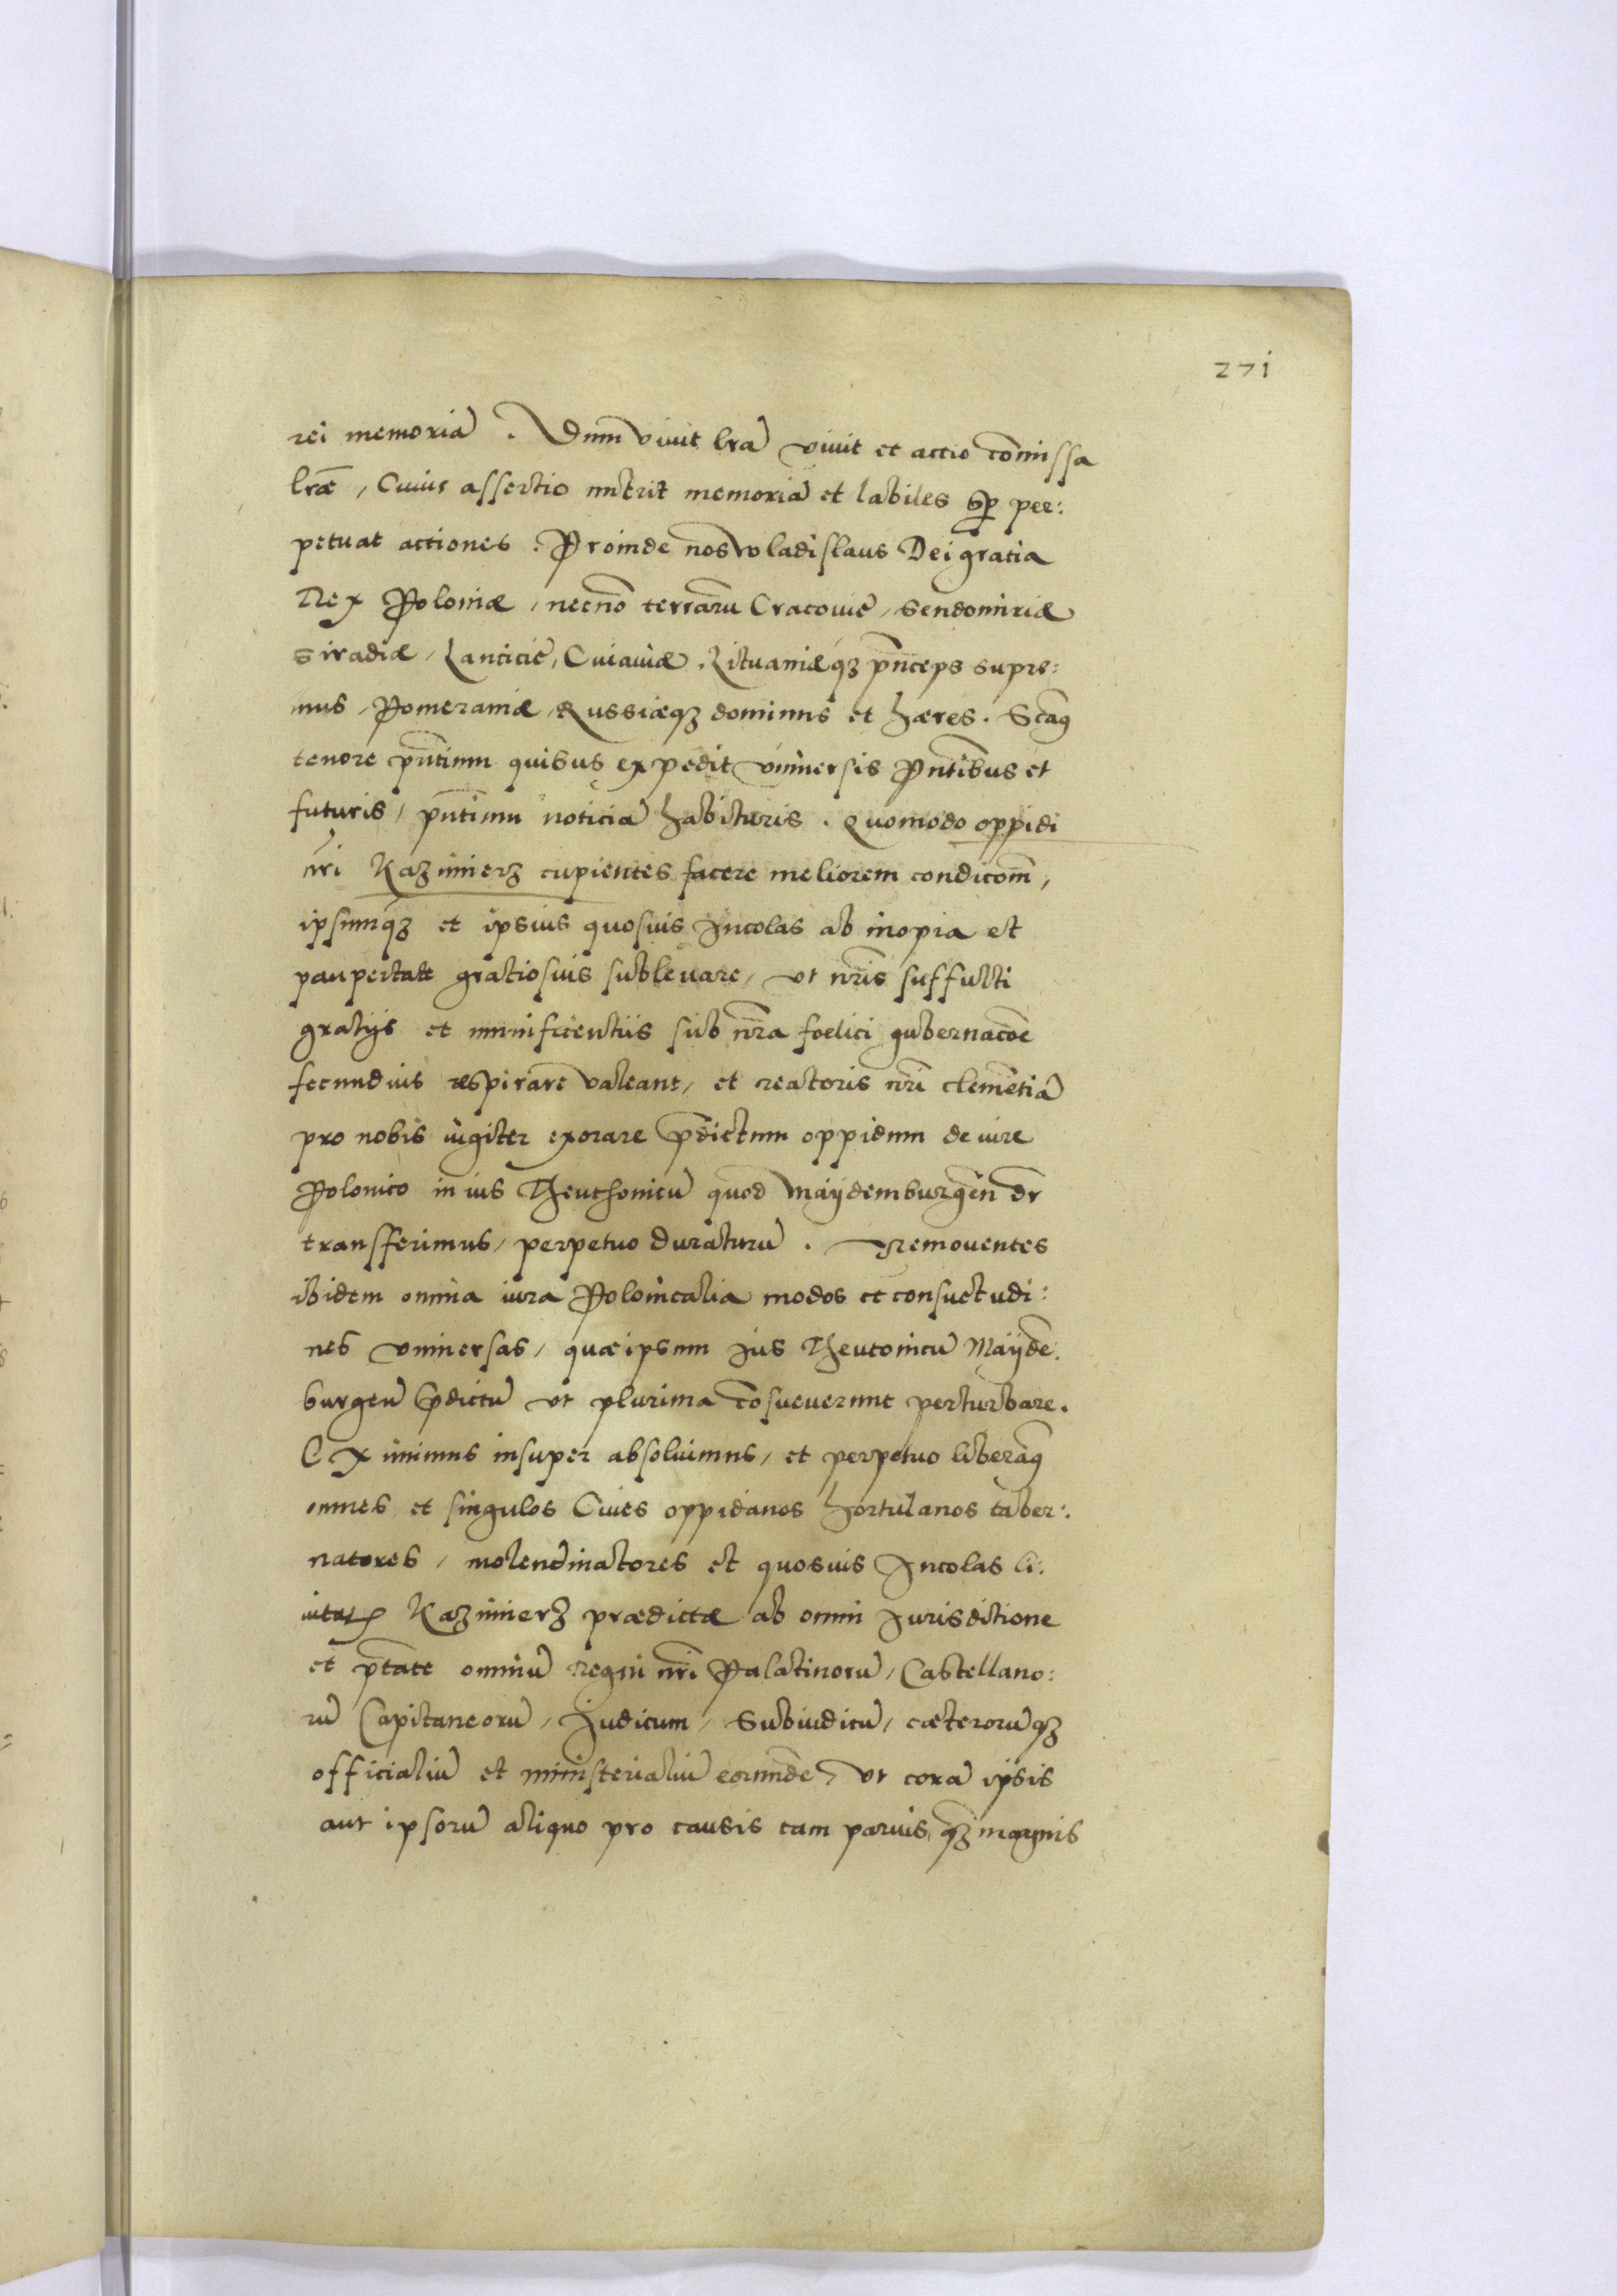 271
rei memoriā. Dum vivit lrā vivit et actio cōmissa
lræ, Cuius assertio nutrit memoriā et labiles sp̄ per:
petuat actiones. Proinde nos wladislaus Dei gratia
Rex Poloniæ, necnō terrarū Cracovie, Sendomiriæ
Siradiæ, Lancicie, Cuiaviæ, Lituaniæq3 pn̄ceps supre:
mus, Pomeraniæ, Russiæq3 dominus et hæres. Sc̄aq
tenore pn̄tium quibus expedit universis Pn̄tibus et
futuris, pn̄tium noticiā habituris. Quomodo oppidi
nr̄i Kazimierz cupientes facere meliorem condicōm̄,
ipsumq3 et ipsius quosvis Incolas ab inopia et
paupertate gratiosius sublevare, ut nr̄is suffulti
gratijs et munificentiis sub nr̄a foelici gubernacōe
fecundius respirare valeant, et reatoris nr̄i clemētiā
pro nobis iugiter exorare p̄dictum oppidum de iure
Polonico in ius Theuthonicū quod Maydemburgēn dr̄
transferimus, perpetuo duraturū. Removentes
ibidem omnia iura Polonicalia modos et consuetudi:
nes universas, quæ ipsum Jus Theutonicū Mayde:
burgen̄ p̄dictū ut plurima cōsueverunt perturbare.
Eximimus insuper absolvimus, et perpetuo liberāq
omnes et singulos Cives oppidanos hortulanos taber:
natores, molendinatores et quosvis Incolas Ci:
vitatis Kazimierz prædictæ ab omni Jurisditione
et p̄tate omniū Regni nr̄i Palatinorū, Castellano:
rū Capitaneorū, Judicum, Subiudicū, cæterorūq3
officialiū et ministerialiū eorumdē, ut corā ipsis
aut ipsorū aliquo pro causis tam parvis, q3 magnis